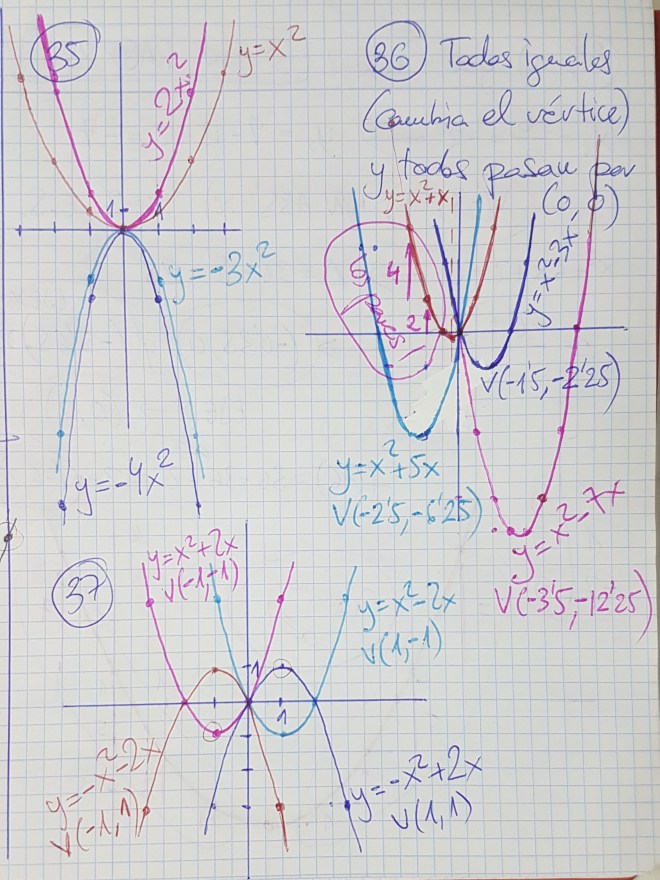 35
y=x²
y=2x²
1
1
y=-3x²
y=-4x²
36 Todas iguales
(cambia el vértice)
y todas pasan por
(0,0)
y=x²+x
4
2
y=x²-3x
V(-1'5,-2'25)
y=x²+5x
V(-2'5,-6'25)
y=x²-7x
V(-3'5,-12'25)
37
y=x²+2x
V(-1,-1)
y=x²-2x
V(1,-1)
1
1
y=-x²-2x
V(-1,1)
y=-x²+2x
V(1,1)